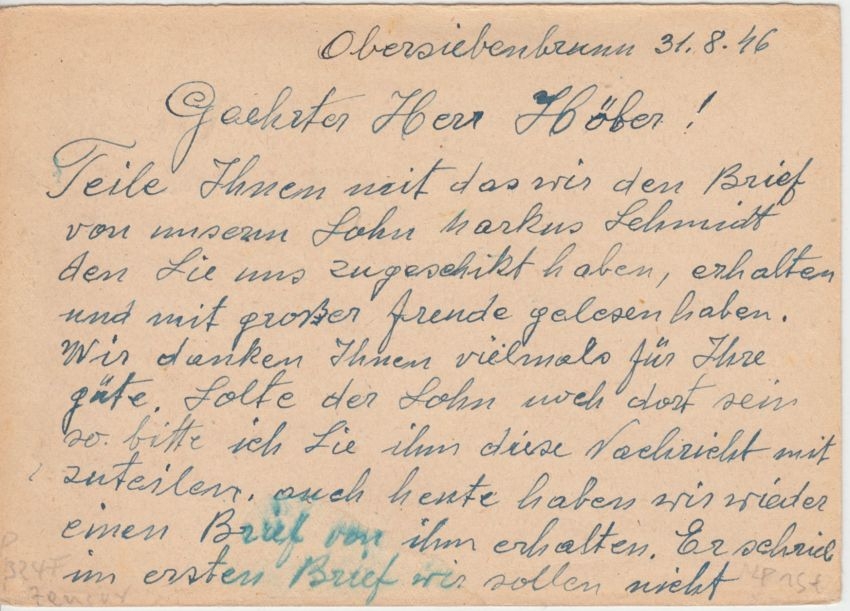 Obersiebenbrunn 31.8.46
Geehrter Herr Höber!
Teile Ihnen mit das wir den Brief
von unsern Sohn Markus Schmidt
den Sie uns zugeschikt haben, erhalten
und mit großer freude gelesen haben.
Wir danken Ihnen vielmals für Ihre
güte. Solte der Sohn noch dort sein
so bitte ich Sie ihm diese Nachricht mit
zuteilen. auch heute haben wir wieder
einen Brief von ihm erhalten. Er schrieb
im ersten Brief wir sollen nicht